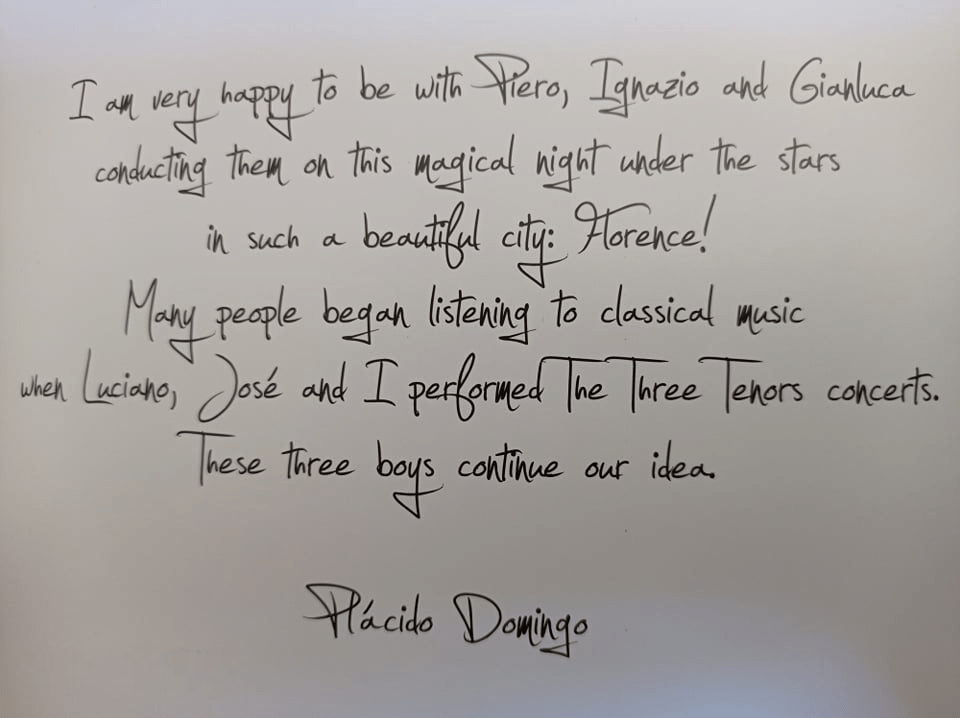 I am very happy to be with Piero, Ignazio and Gianluca
conducting them on this magical night under the stars
in such a beautiful city: Florence!
Many people began listening to classical music
when Luciano, José and I performed The Three Tenors concerts.
These three boys continue our idea.
Plácido Domingo